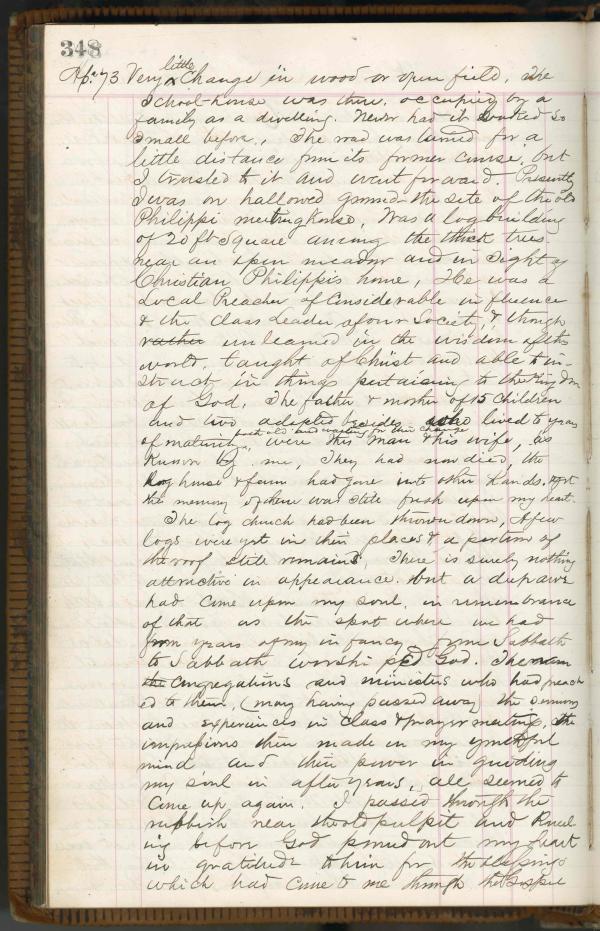 348
Ap. 73 Very little Change in wood or open field. The
School-house was there. occupied by a
family as a dwelling. Never had it looked so
small before., The road was turned for a
little distance from its former course, but
I trusted to it and went forward. Presently
I was on hallowed ground the site of the old
Philippi meeting house, Was a log building
of 20 ft Square among the thick trees
near an open meadow and in Sight of
Christian Philippi's home, He was a
Local Preacher of Considerable influence
& the Class Leader of our Society, & though
rather unlearned in the wisdom of this
world, taught of Christ and able to in-
struct in things pertaining to the Kingdom
of God. The father & mother of 15 Children
and two adopted besides lived to years
of maturity, both old and waiting for their change were this man & his wife, as
Known by me, They had now died, the
log house & farm had gone into other hands. but
the memory of them was still fresh upon my heart.
The log church had been thrown down, A few
logs were yet in their places & a portion of
the roof still remains, There is surely nothing
attractive in appearance. But a deep awe
had come upon my soul, in remembrance
of that as the spot where we had
from years of my infancy from Sabbath
to Sabbath worshiped God. The
the Congregations and ministers who had preach
ed to them, (many having passed away) the Sermons
and experiences in Class & prayer meetings, the
impressions then made in my youthful
mind and their power in guiding
my soul in after years, all seemed to
Come up again. I passed through the
rubbish near the old pulpit and Kneel
ing before God poured out my heart
in gratitude to him for the blessings
which had come to me through the Gospel